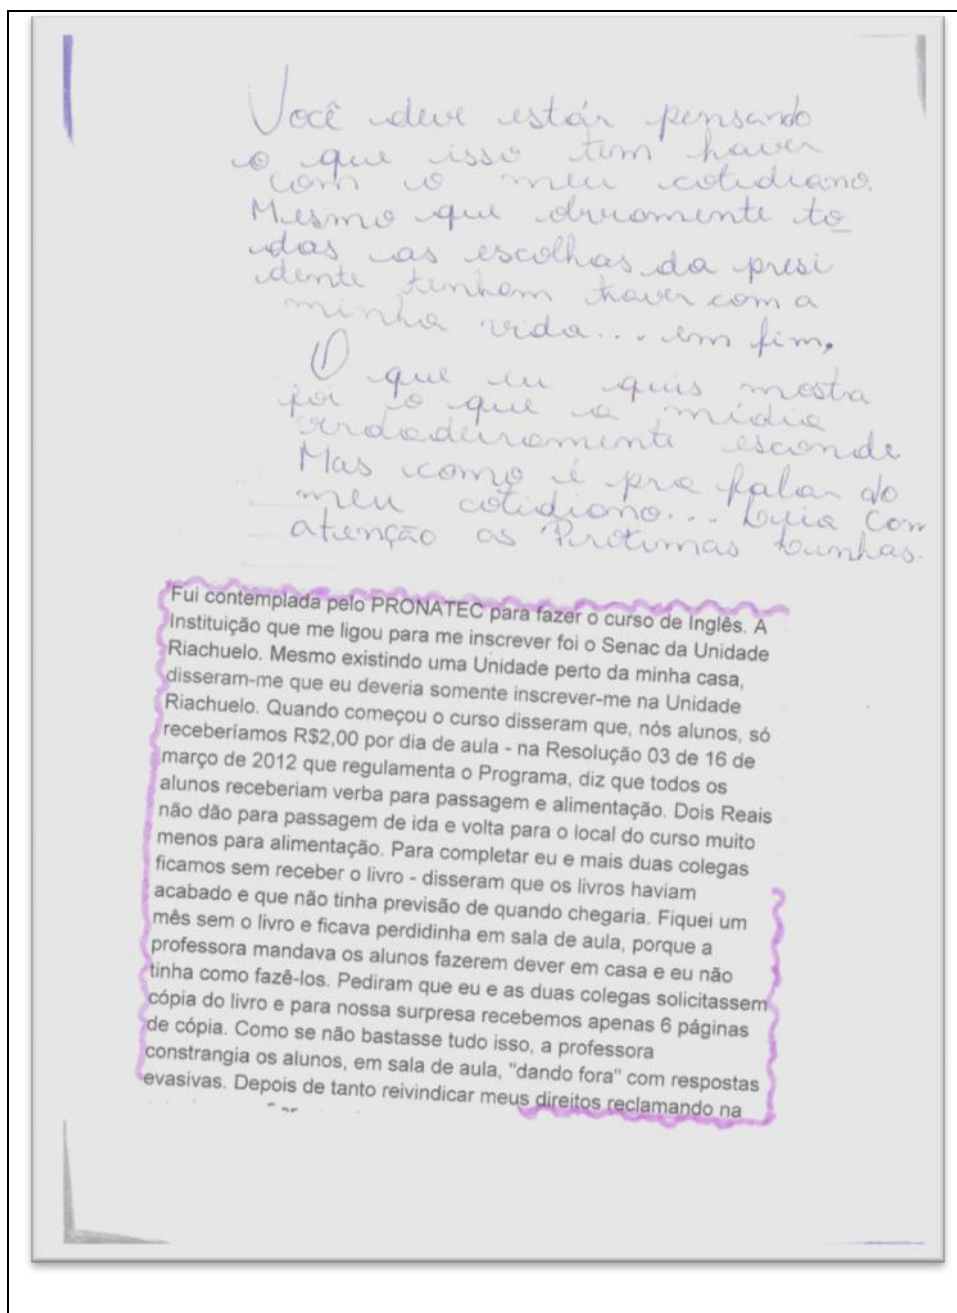 Você deve estár pensando
o que isso tem haver
com o meu cotidiano.
Mesmo que obviamente to
das as escolhas da presi
dente tenham haver com a
minha vida... em fim,
O que eu quis mostra
foi o que a mídia
verdadeiramente esconde
Mas como é pra falar do
meu cotidiano... Leia com
atenção as Proximas Linhas.
Fui contemplada pelo PRONATEC para fazer o curso de Inglês. A
Instituição que me ligou para me inscrever foi o Senac da Unidade
Riachuelo. Mesmo existindo uma Unidade perto da minha casa,
disseram-me que eu deveria somente inscrever-me na Unidade
Riachuelo. Quando começou o curso disseram que, nós alunos, só
receberíamos R$2,00 por dia de aula - na Resolução 03 de 16 de
março de 2012 que regulamenta o Programa, diz que todos os
alunos receberiam verba para passagem e alimentação. Dois Reais
não dão para passagem de ida e volta para o local do curso muito
menos para alimentação. Para completar eu e mais duas colegas
ficamos sem receber o livro - disseram que os livros haviam
acabado e que não tinha previsão de quando chegaria. Fiquei um
mês sem o livro e ficava perdidinha em sala de aula, porque a
professora mandava os alunos fazerem dever em casa e eu não
tinha como fazê-los. Pediram que eu e as duas colegas solicitassem
cópia do livro e para nossa surpresa recebemos apenas 6 páginas
de cópia. Como se não bastasse tudo isso, a professora
constrangia os alunos, em sala de aula, "dando fora" com respostas
evasivas. Depois de tanto reivindicar meus direitos reclamando na